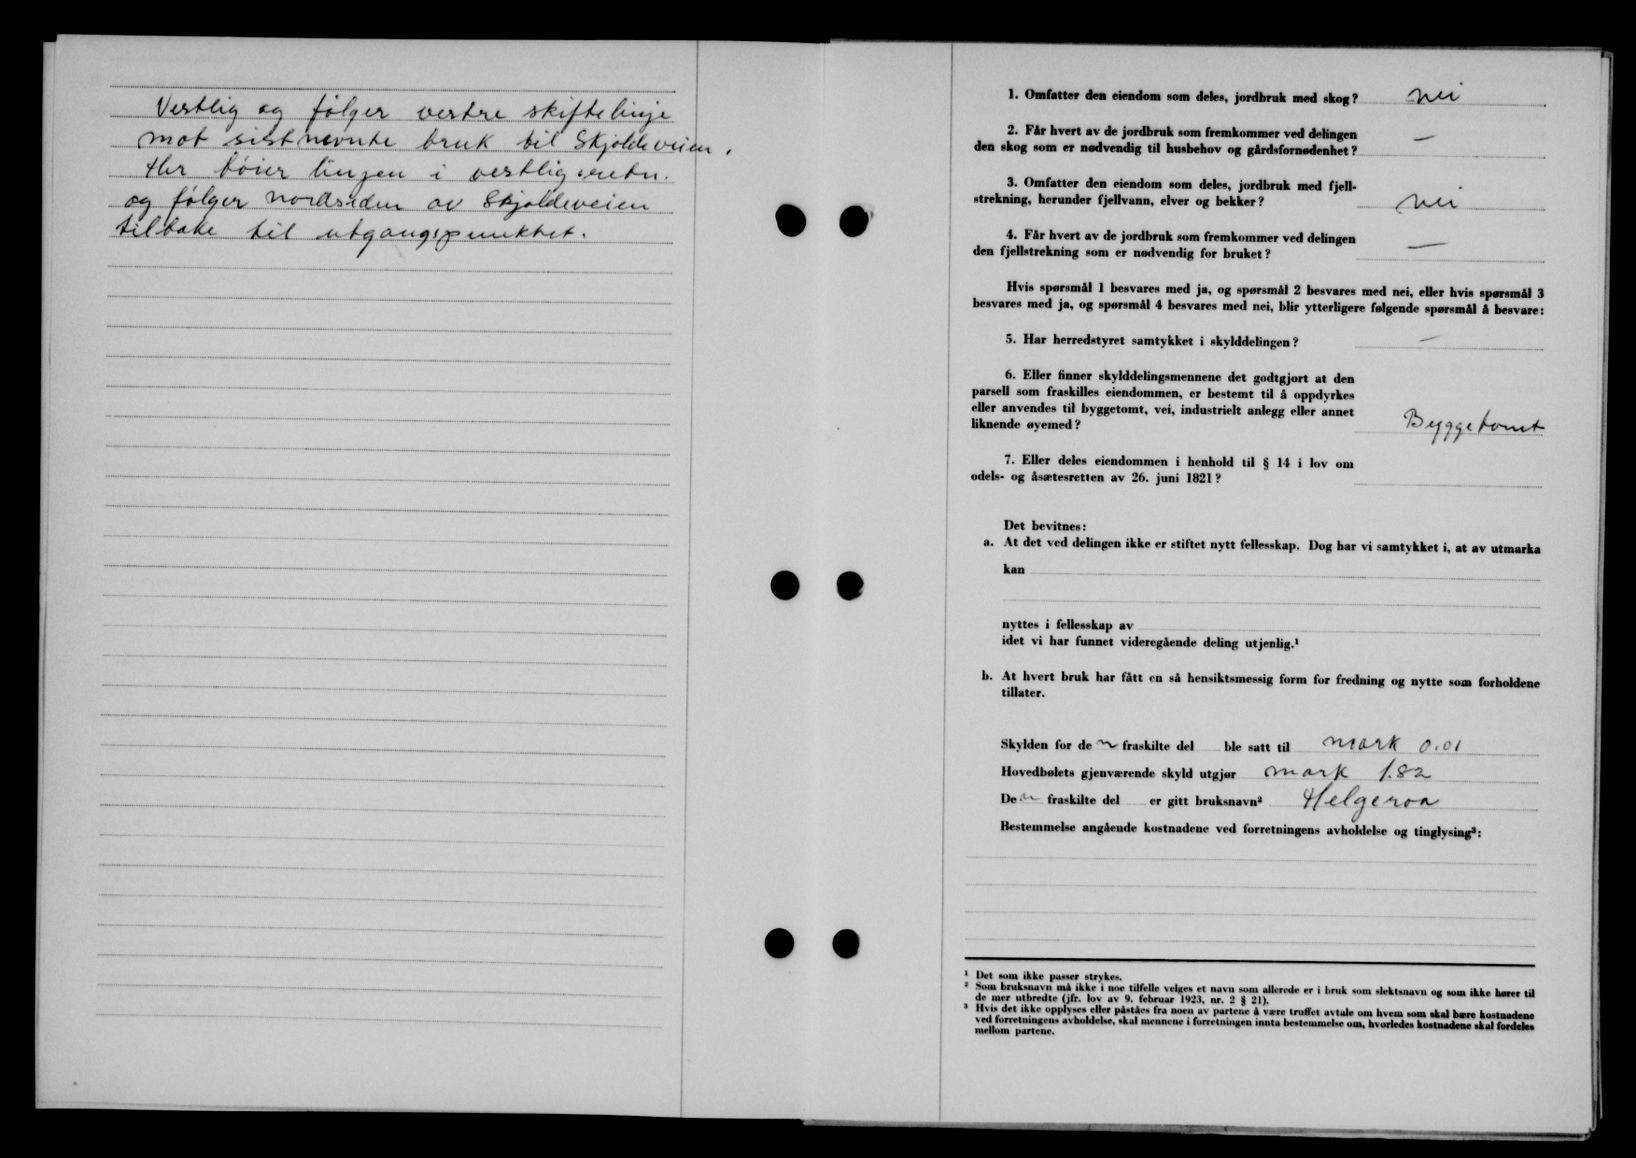 Vestlig og følger vestre skiftelinje
mot sistnevnte bruk til Skjoldeveien.
Her bøier linjen i vestlig retn.
og følger nordsiden av Skjoldeveien
tilbake til utgangspunktet.
1. Omfatter den eiendom som deles, jordbruk med skog? nei
2. Får hvert av de jordbruk som fremkommer ved delingen
den skog som er nødvendig til husbehov og gårdsfornødenhet? —
3. Omfatter den eiendom som deles, jordbruk med fjell-
strekning, herunder fjellvann, elver og bekker? nei
4. Får hvert av de jordbruk som fremkommer ved delingen
den fjellstrekning som er nødvendig for bruket? —
Hvis spørsmål 1 besvares med ja, og spørsmål 2 besvares med nei, eller hvis spørsmål 3
besvares med ja, og spørsmål 4 besvares med nei, blir ytterligere følgende spørsmål å besvare:
5. Har herredstyret samtykket i skylddelingen? —
6. Eller finner skylddelingsmennene det godtgjort at den
parsell som fraskilles eiendommen, er bestemt til å oppdyrkes
eller anvendes til byggetomt, vei, industrielt anlegg eller annet
liknende øyemed? Byggetomt
7. Eller deles eiendommen i henhold til § 14 i lov om
odels- og åsætesretten av 26. juni 1821?
Det bevitnes:
a. At det ved delingen ikke er stiftet nytt fellesskap. Dog har vi samtykket i, at av utmarka
kan
nyttes i fellesskap av
idet vi har funnet videregående deling utjenlig.¹
b. At hvert bruk har fått en så hensiktsmessig form for fredning og nytte som forholdene
tillater.
Skylden for den fraskilte del ble satt til mark 0.01
Hovedbølets gjenværende skyld utgjør mark 1.82
Den fraskilte del er gitt bruksnavn² Helgeroa
Bestemmelse angående kostnadene ved forretningens avholdelse og tinglysing³:
¹ Det som ikke passer strykes.
² Som bruksnavn må ikke i noe tilfelle velges et navn som allerede er i bruk som slektsnavn og som ikke hører til
de mer utbredte (jfr. lov av 9. februar 1923, nr. 2 § 21).
³ Hvis det ikke opplyses eller påståes fra noen av partene å være truffet avtale om hvem som skal bære kostnadene
ved forretningens avholdelse, skal mennene i forretningen innta bestemmelse om, hvorledes kostnadene skal fordeles
mellom partene.